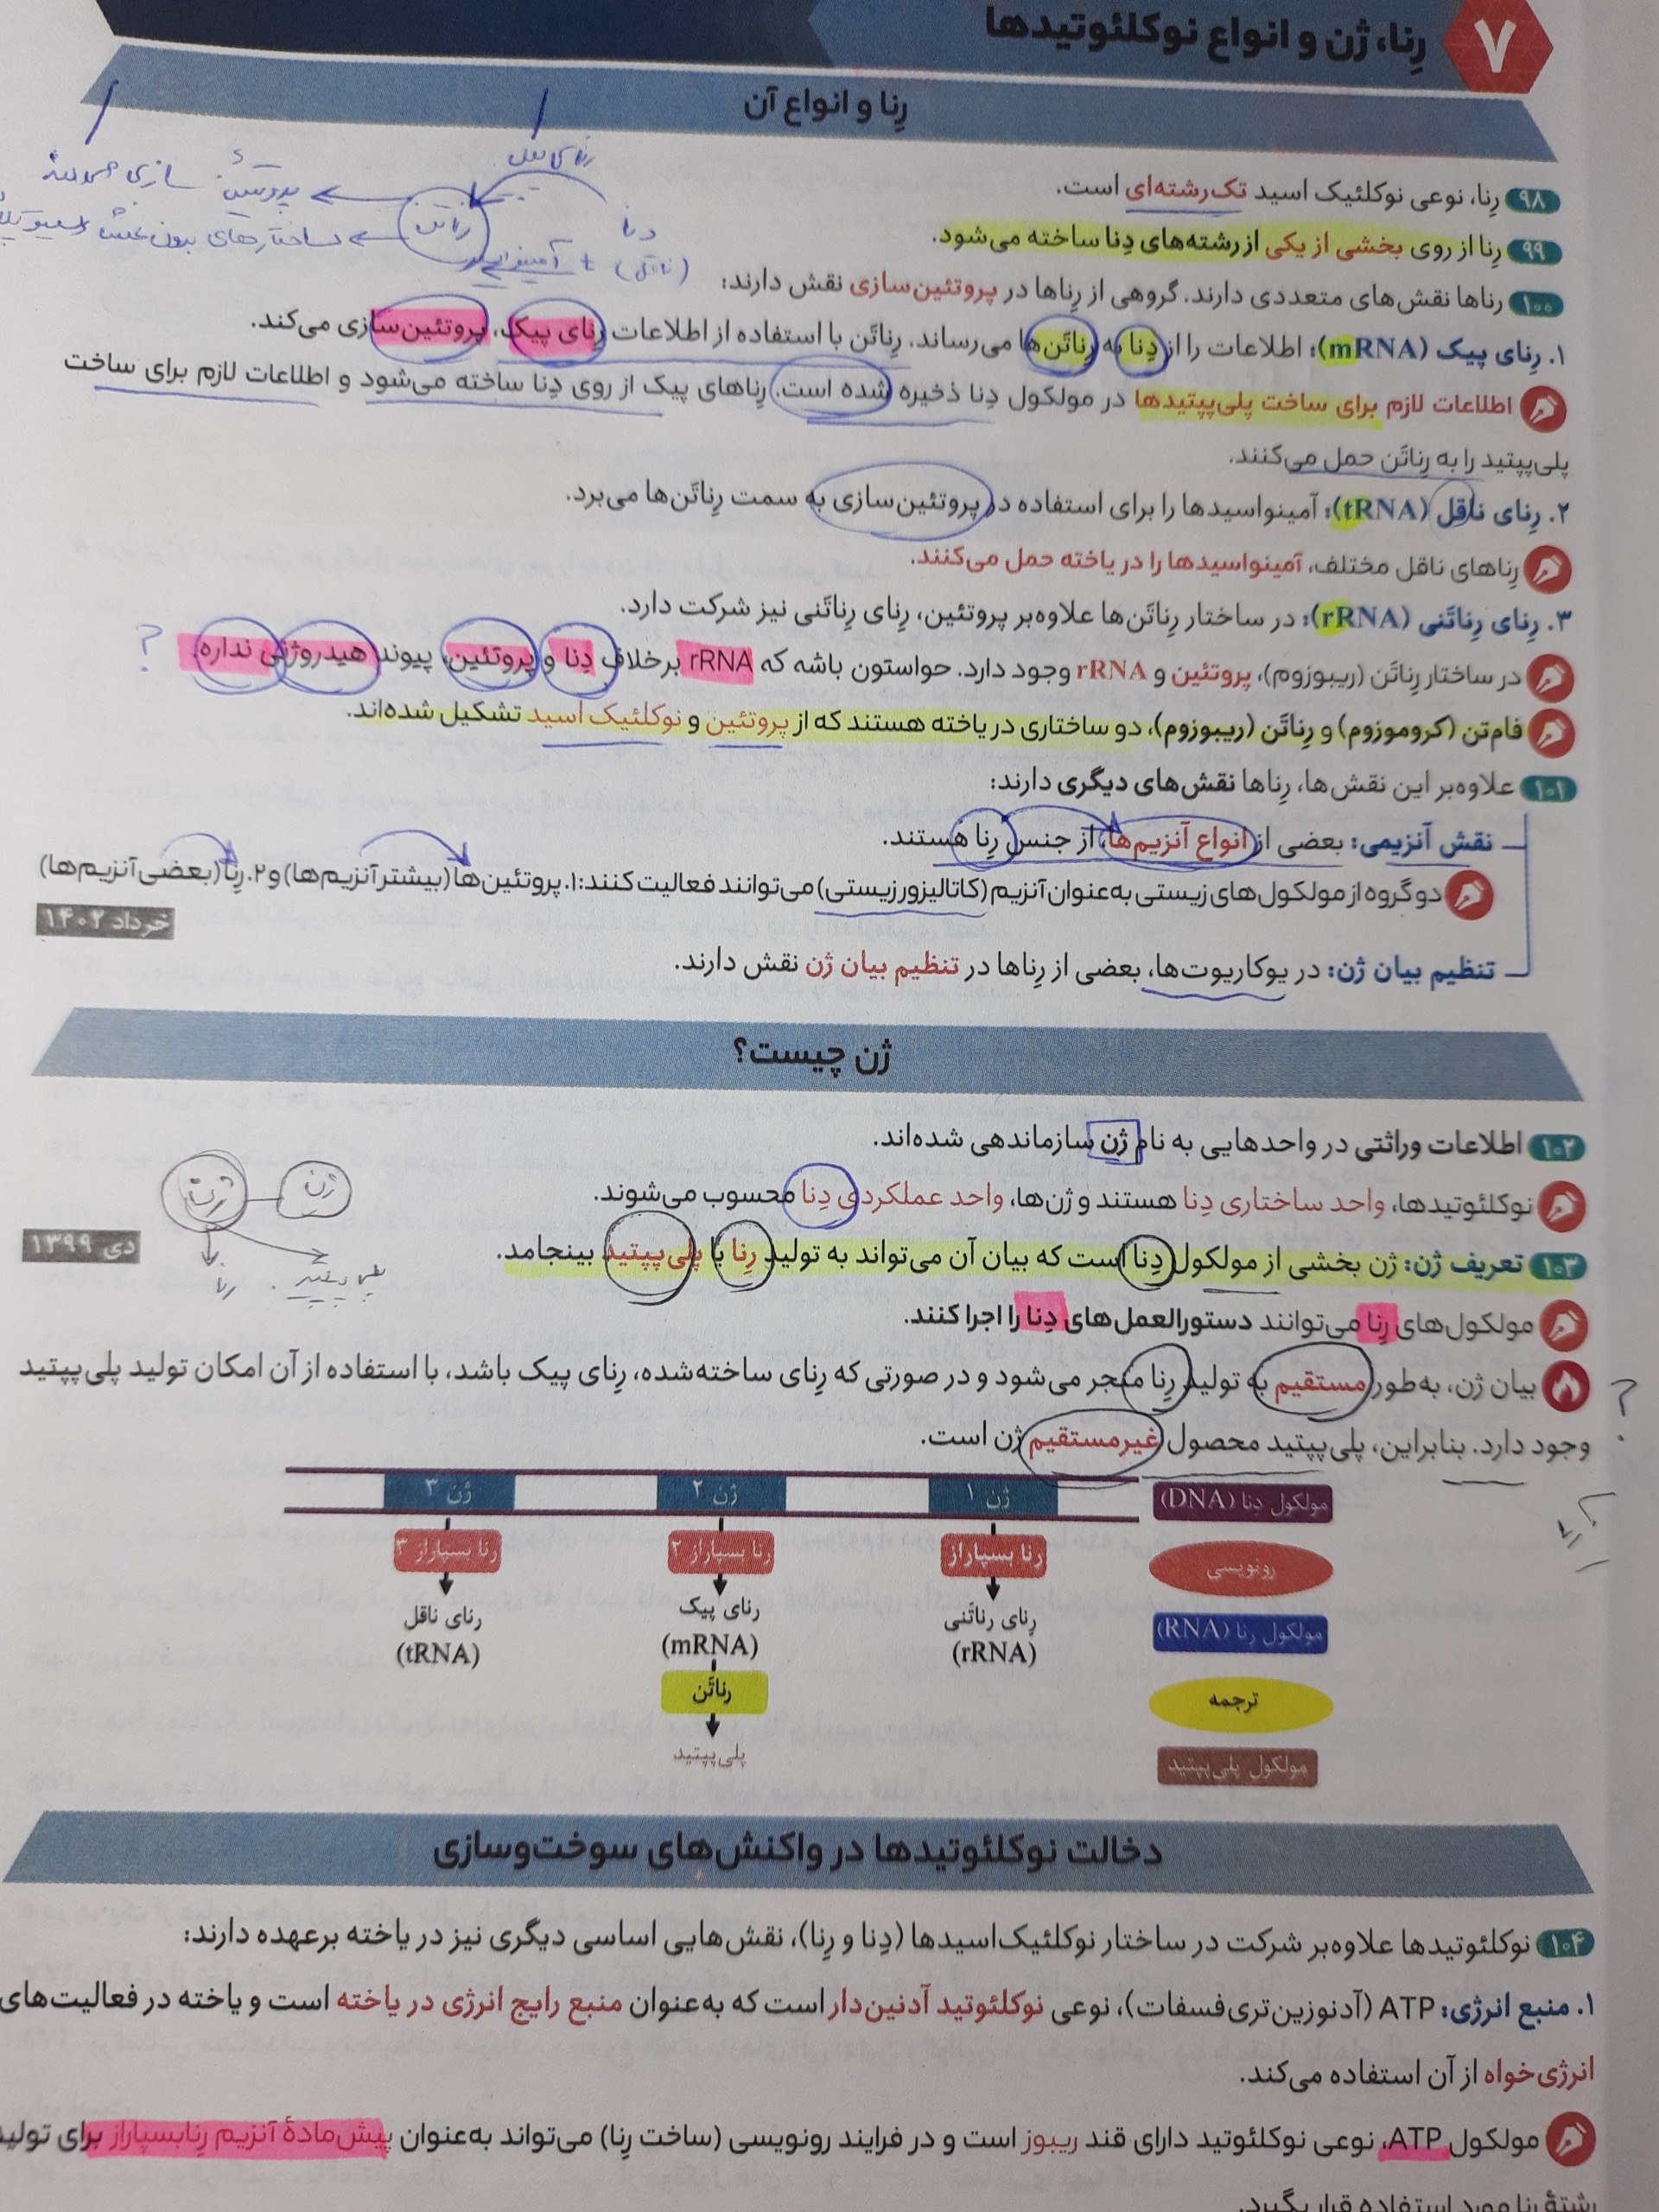 ۷
رِنا، ژن و انواع نوکلئوتیدها
رِنا و انواع آن
۹۸ رِنا، نوعی نوکلئیک اسید تک‌رشته‌ای است.
۹۹ رِنا از روی بخشی از یکی از رشته‌های دِنا ساخته می‌شود.
۱۰۰ رناها نقش‌های متعددی دارند. گروهی از رِناها در پروتئین‌سازی نقش دارند:
۱. رِنای پیک (mRNA): اطلاعات را از دِنا به رِناتَن‌ها می‌رساند. رِناتَن با استفاده از اطلاعات رِنای پیک، پروتئین‌سازی می‌کند.
اطلاعات لازم برای ساخت پلی‌پپتیدها در مولکول دِنا ذخیره شده است. رِناهای پیک از روی دِنا ساخته می‌شود و اطلاعات لازم برای ساخت
پلی‌پپتید را به رِناتَن حمل می‌کنند.
۲. رِنای ناقل (tRNA): آمینواسیدها را برای استفاده در پروتئین‌سازی به سمت رِناتَن‌ها می‌برد.
رِناهای ناقل مختلف، آمینواسیدها را در یاخته حمل می‌کنند.
۳. رِنای رِناتَنی (rRNA): در ساختار رِناتَن‌ها علاوه‌بر پروتئین، رِنای رِناتَنی نیز شرکت دارد.
در ساختار رِناتَن (ریبوزوم)، پروتئین و rRNA وجود دارد. حواستون باشه که rRNA برخلاف دِنا و پروتئین، پیوند هیدروژنی نداره. ?
فام‌تن (کروموزوم) و رِناتَن (ریبوزوم)، دو ساختاری در یاخته هستند که از پروتئین و نوکلئیک اسید تشکیل شده‌اند.
۱۰۱ علاوه‌بر این نقش‌ها، رِناها نقش‌های دیگری دارند:
نقش آنزیمی: بعضی از انواع آنزیم‌ها، از جنس رِنا هستند.
دو گروه از مولکول‌های زیستی به‌عنوان آنزیم (کاتالیزور زیستی) می‌توانند فعالیت کنند: ۱. پروتئین‌ها (بیشتر آنزیم‌ها) و ۲. رِنا (بعضی آنزیم‌ها)
خرداد ۱۴۰۲
تنظیم بیان ژن: در یوکاریوت‌ها، بعضی از رِناها در تنظیم بیان ژن نقش دارند.
ژن چیست؟
۱۰۲ اطلاعات وراثتی در واحدهایی به نام ژن سازماندهی شده‌اند.
نوکلئوتیدها، واحد ساختاری دِنا هستند و ژن‌ها، واحد عملکردی دِنا محسوب می‌شوند.
۱۰۳ تعریف ژن: ژن بخشی از مولکول دِنا است که بیان آن می‌تواند به تولید رِنا یا پلی‌پپتید بینجامد.
دی ۱۳۹۹
مولکول‌های رِنا می‌توانند دستورالعمل‌های دِنا را اجرا کنند.
بیان ژن، به‌طور مستقیم به تولید رِنا منجر می‌شود و در صورتی که رِنای ساخته‌شده، رِنای پیک باشد، با استفاده از آن امکان تولید پلی‌پپتید
وجود دارد. بنابراین، پلی‌پپتید محصول غیرمستقیم ژن است.
مولکول دِنا (DNA) ژن ۱ ژن ۲ ژن ۳
رونویسی رنا بسپاراز رنا بسپاراز ۲ رنا بسپاراز ۳
مولکول رنا (RNA) رِنای رناتَنی (rRNA) رنای پیک (mRNA) رنای ناقل (tRNA)
ترجمه رناتَن
مولکول پلی‌پپتید پلی‌پپتید
دخالت نوکلئوتیدها در واکنش‌های سوخت‌وسازی
۱۰۴ نوکلئوتیدها علاوه‌بر شرکت در ساختار نوکلئیک‌اسیدها (دِنا و رِنا)، نقش‌هایی اساسی دیگری نیز در یاخته برعهده دارند:
۱. منبع انرژی: ATP (آدنوزین‌تری‌فسفات)، نوعی نوکلئوتید آدنین‌دار است که به‌عنوان منبع رایج انرژی در یاخته است و یاخته در فعالیت‌های
انرژی‌خواه از آن استفاده می‌کند.
مولکول ATP، نوعی نوکلئوتید دارای قند ریبوز است و در فرایند رونویسی (ساخت رِنا) می‌تواند به‌عنوان پیش‌مادهٔ آنزیم رِنابسپاراز برای تولید
رشتهٔ رنا مورد استفاده قرار بگیرد.